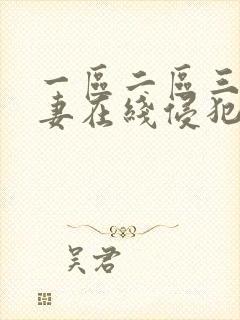 一區二區三
妻在綫侵犯
吴君